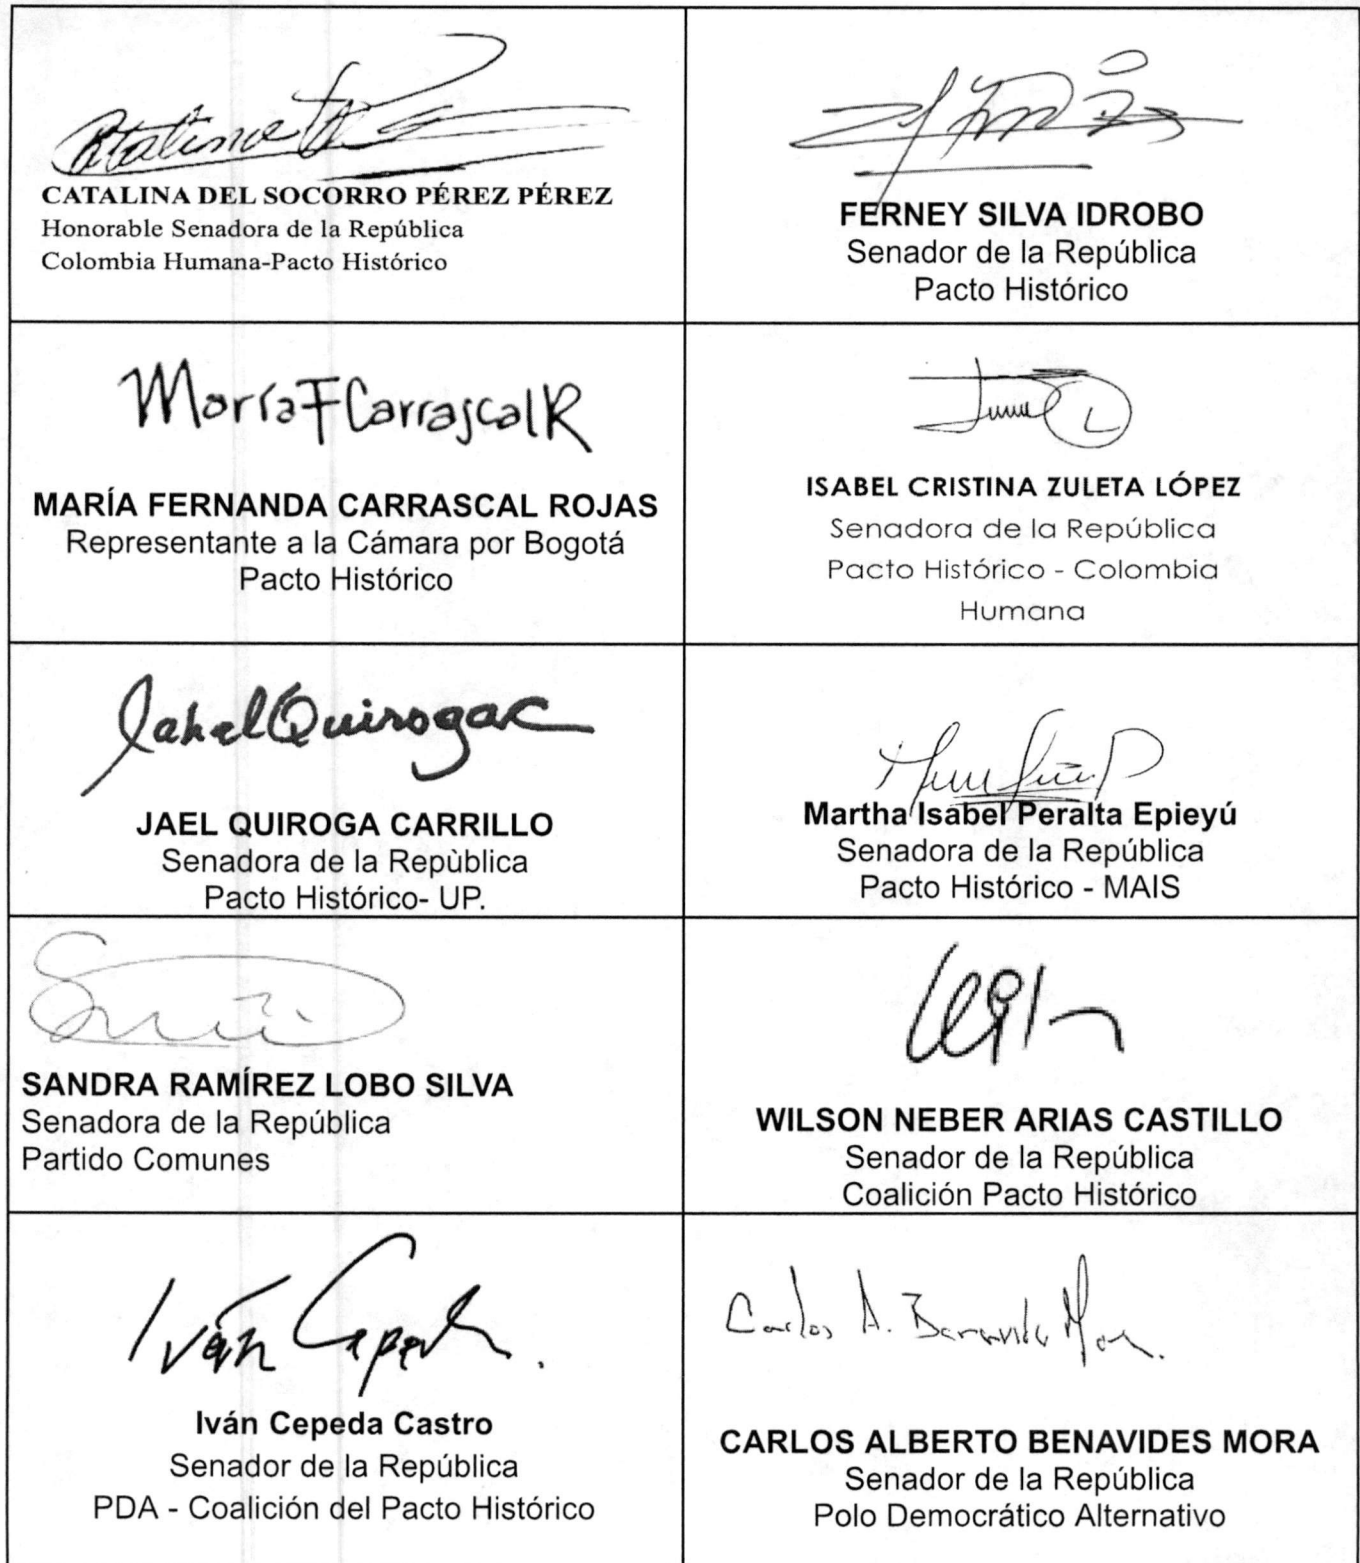 Catalina
CATALINA DEL SOCORRO PÉREZ PÉREZ
Honorable Senadora de la República
Colombia Humana-Pacto Histórico
FERNEY SILVA IDROBO
Senador de la República
Pacto Histórico
María F Carrascal R
MARÍA FERNANDA CARRASCAL ROJAS
Representante a la Cámara por Bogotá
Pacto Histórico
ISABEL CRISTINA ZULETA LÓPEZ
Senadora de la República
Pacto Histórico - Colombia
Humana
Jahel Quiroga C
JAEL QUIROGA CARRILLO
Senadora de la Repùblica
Pacto Histórico- UP.
Martha Isabel Peralta Epieyú
Senadora de la República
Pacto Histórico - MAIS
SANDRA RAMÍREZ LOBO SILVA
Senadora de la República
Partido Comunes
WILSON NEBER ARIAS CASTILLO
Senador de la República
Coalición Pacto Histórico
Iván Cepeda
Iván Cepeda Castro
Senador de la República
PDA - Coalición del Pacto Histórico
Carlos A. Benavides Mora
CARLOS ALBERTO BENAVIDES MORA
Senador de la República
Polo Democrático Alternativo